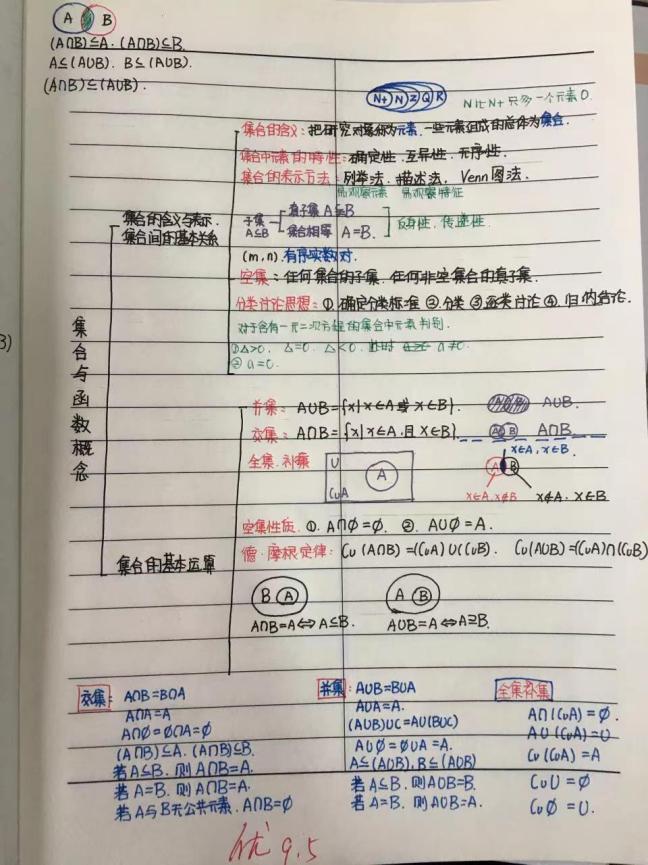 A B
(A∩B)⊆A. (A∩B)⊆B.
A⊆(A∪B). B⊆(A∪B).
(A∩B)⊆(A∪B).
N+ N Z Q R
N比N+只多一个元素0.
集合的含义：把研究对象称为元素.一些元素组成的总体为集合.
集合中元素的特性：确定性.互异性.无序性.
集合的表示方法：列举法.描述法.Venn图法.
易观察元素 易观察特征
集合的含义与表示.
集合间的基本关系
子集 A⊆B
真子集 A⫋B
集合相等 A=B.
反身性.传递性.
(m,n).有序实数对.
空集：任何集合的子集.任何非空集合的真子集.
分类讨论思想：①.确定分类标准 ②.分类 ③逐类讨论 ④.归纳结论.
对于含有一元二次方程的集合中元素判别.
①Δ>0. Δ=0. Δ<0. 此时 a≠0.
② a=0.
3)
集合与函数概念
并集：A∪B={x|x∈A或x∈B}. A B A∪B.
交集：A∩B={x|x∈A.且x∈B}. A B A∩B.
x∈A,x∈B.
全集.补集 U A CuA
A B
x∈A,x∉B x∉A.x∈B.
空集性质.①.A∩∅=∅. ②.A∪∅=A.
德·摩根定律：Cu(A∩B)=(CuA)∪(CuB). Cu(A∪B)=(CuA)∩(CuB)
集合的基本运算
B A A B
A∩B=A⇔A⊆B. A∪B=A⇔A⊇B.
交集：A∩B=B∩A
A∩A=A
A∩∅=∅∩A=∅
(A∩B)⊆A.(A∩B)⊆B.
若A⊆B.则A∩B=A.
若A=B.则A∩B=A.
若A与B无公共元素.A∩B=∅
并集：A∪B=B∪A
A∪A=A.
(A∪B)∪C=A∪(B∪C)
A∪∅=∅∪A=A.
A⊆(A∪B).B⊆(A∪B)
若A⊆B.则A∪B=B.
若A=B.则A∪B=A.
全集补集
A∩(CuA)=∅.
A∪(CuA)=U
Cu(CuA)=A
CuU=∅
Cu∅=U.
优 9.5